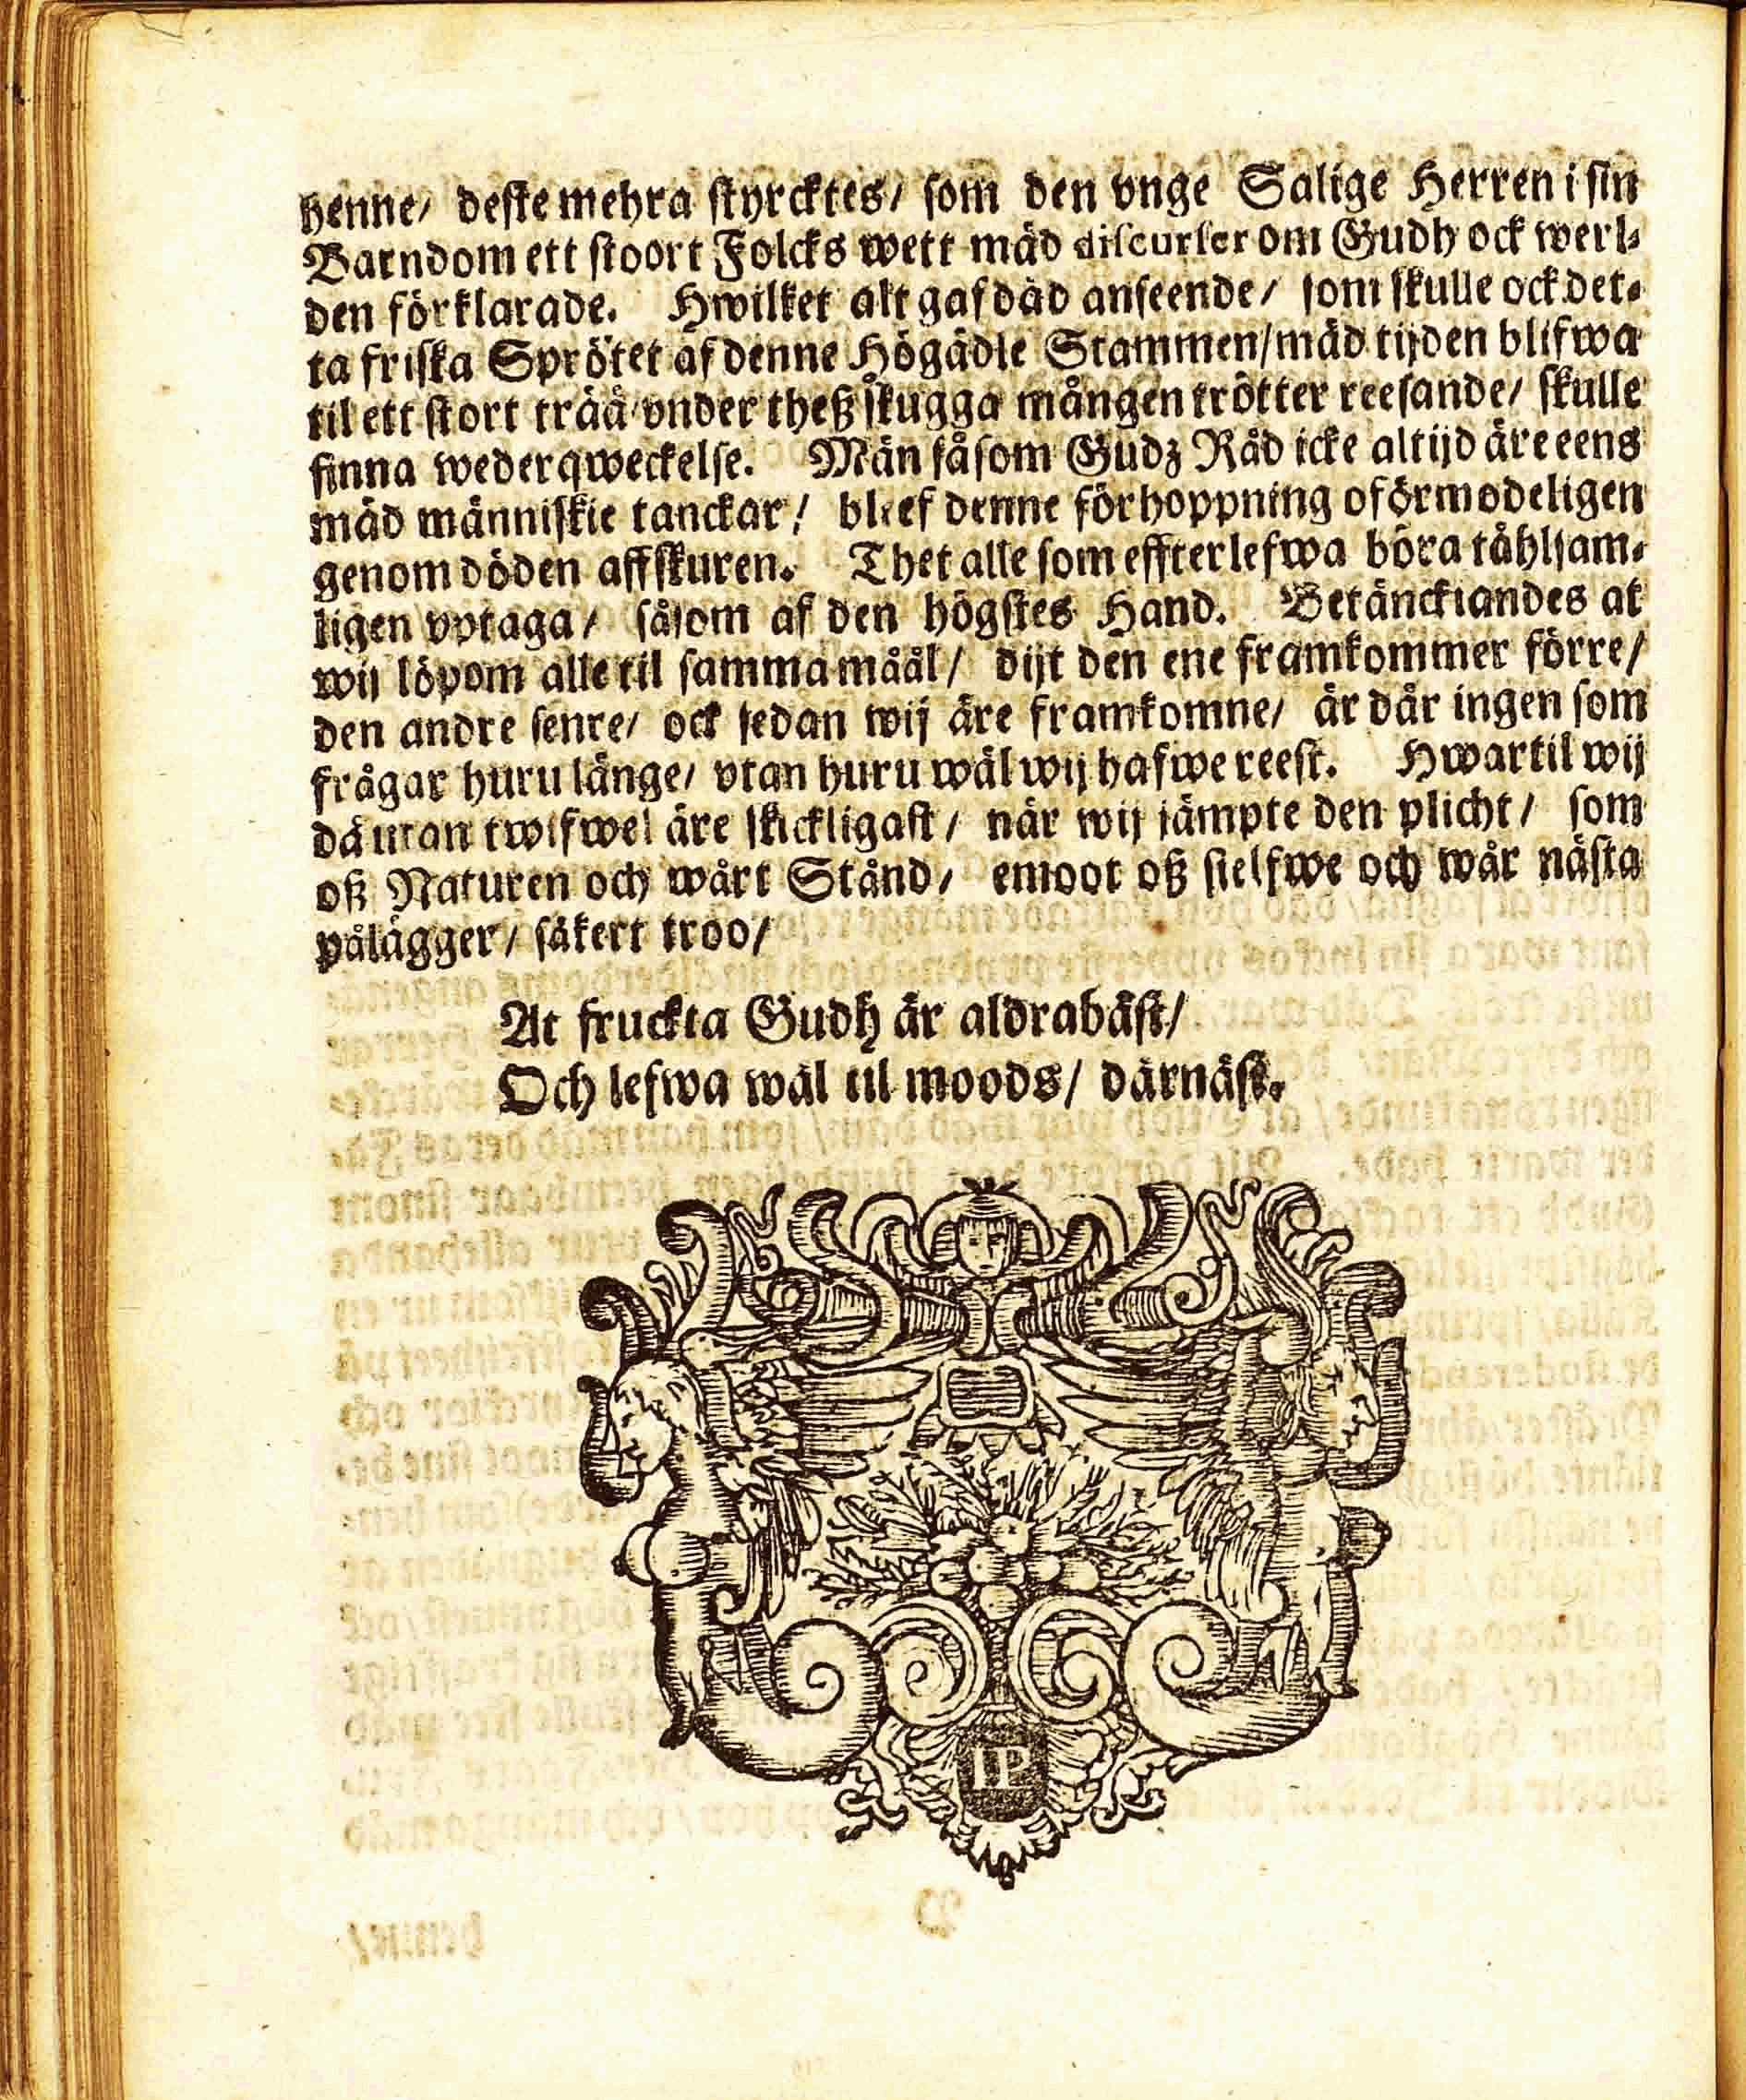 henne/ deste mehra styrcktes/ som den vnge Salige Herren i sin
Barndom ett stoort Folcks wett mäd discurser om Gudh ock werl-
den förklarade. Hwilket alt gaf däd anseende/ som skulle ock det-
ta friska Sprötet af denne Högädle Stammen/ mäd tijden blifwa
til ett stort trää/ vnder theß skugga mången trötter reesande/ skulle
finna wederqweckelse. Män såsom Gudz Råd icke altijd äre eens
mäd människie tanckar/ bleef denne förhoppning oförmodeligen
genom döden affskuren. Thet alle som effterlefwa böra tåhlsam-
ligen vptaga/ såsom af den högstes Hand. Betänckiandes at
wij löpom alle til samma måål/ dijt den ene framkommer förre/
den andre senre/ ock sedan wij äre framkomne/ är där ingen som
frågar huru länge/ vtan huru wäl wij hafwe reest. Hwartil wij
då utan twifwel äre skickligast/ när wij jämpte den plicht/ som
oß Naturen och wårt Stånd/ emoot oß sielfwe och wår nästa
pålägger/ säkert troo/
At fruckta Gudh är aldrabäst/
Och lefwa wäl til moods/ därnäst.
IP